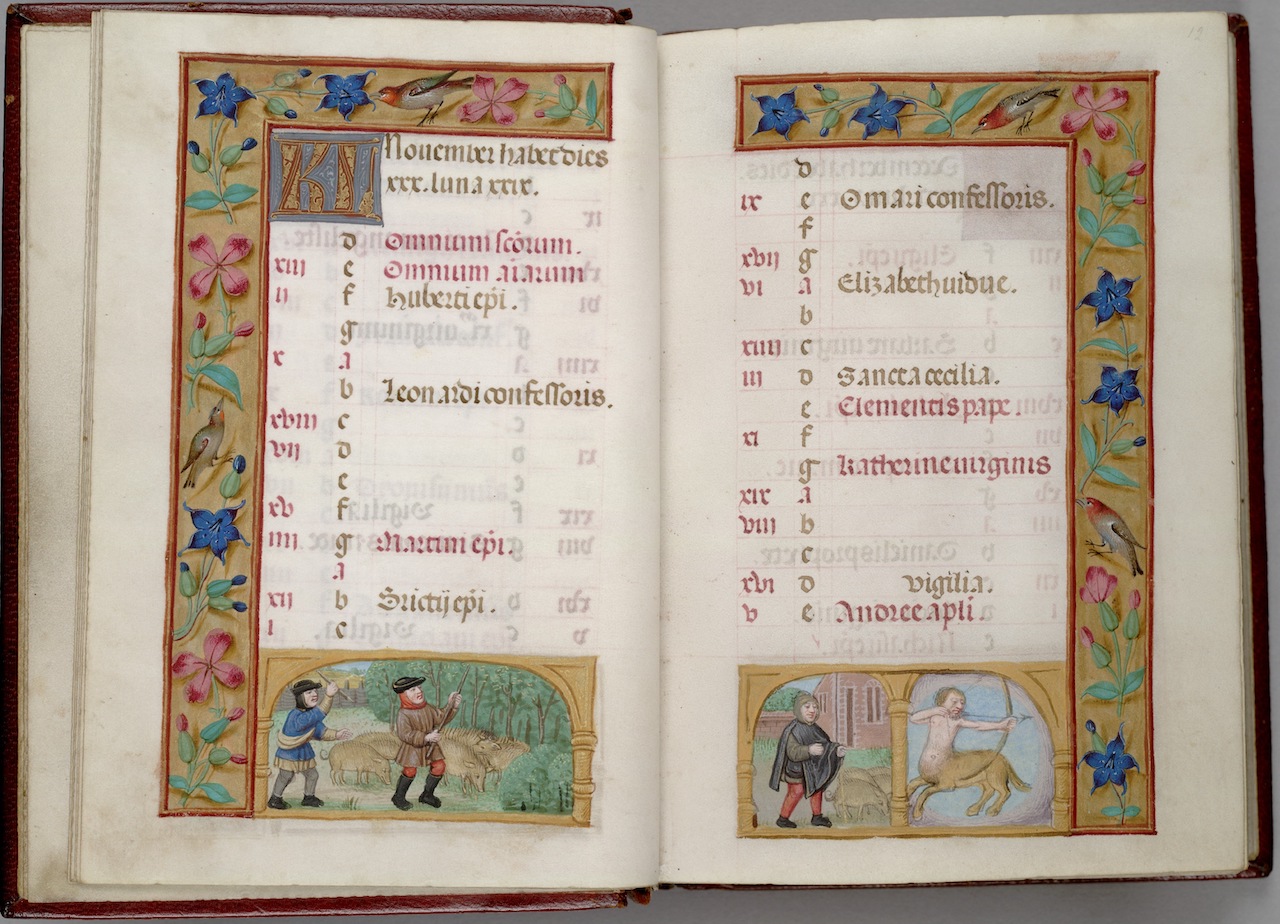 KL Nouember habet dies
xxx. luna xxix.
d Omnium scorum.
xiii e Omnium aiarum
ii f huberti epi.
g
x a
b Leonardi confessoris.
xviii c
vii d
e
xv f
iiii g Martini epi.
a
xii b Brictij epi.
i c
12
d
ix e Omari confessoris.
f
xvii g
vi a Elizabeth uidue.
b
xiiii c
iii d Sancta cecilia.
e Clementis pape.
xi f
g Katherine uirginis
xix a
viii b
c
xvi d vigilia.
v e Andree apli.